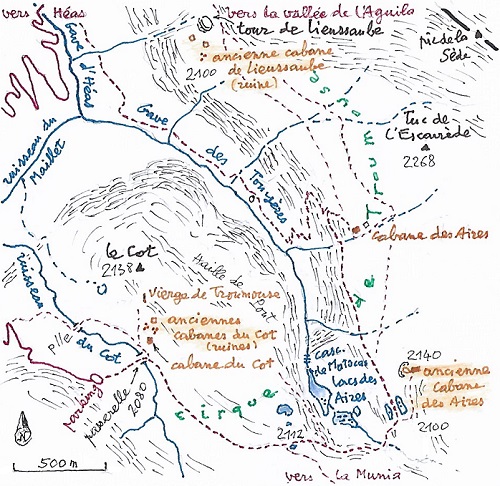 vers Héas
vers la vallée de l'Aguila
tour de Lieussaube
ancienne cabane
de Lieussaube
(ruine)
2100
pic de la
Sède
gave
d'Héas
Gave
des
Touyères
Tuc de
l'Escurède
2268
ruisseau du
Maillet
cabane des Aires
le Cot
2138
Vierge de Troumouse
anciennes
cabanes du Cot
(ruines)
cabane du Cot
ruisseau
du Cot
passerelle
2080
parking
cirque
de
Troum
casc.
lacs des
Aires
2140
ancienne
cabane
des Aires
2100
2112
vers La Munia
500 m
N